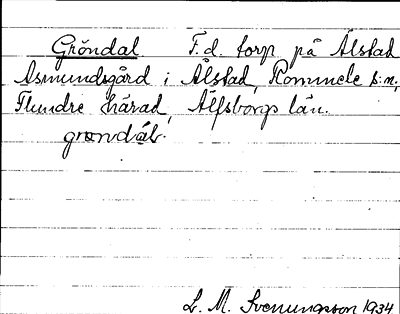 Gröndal. F.d. torp på Älstad
Asmundsgård i Älstad, Rommele s:n,
Flundre härad, Älfsborgs län.
L. M. Svenungsson 1934